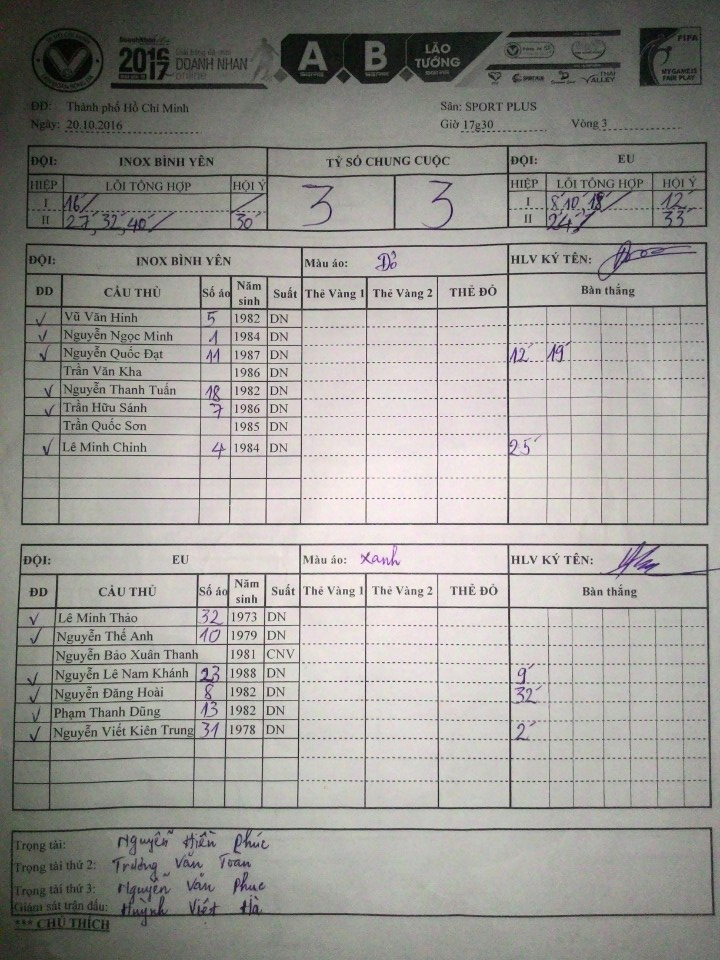 DoanhNhân
2016 2017
Giải bóng đá mini
DOANH NHÂN
online
A B LÃO TƯỚNG
THÁI VALLEY
FIFA
MY GAME IS FAIR PLAY
ĐD: Thành phố Hồ Chí Minh Sân: SPORT PLUS
Ngày: 20.10.2016 Giờ 17g30 Vòng 3
ĐỘI: INOX BÌNH YÊN TỶ SỐ CHUNG CUỘC ĐỘI: EU
HIỆP LỖI TỔNG HỢP HỘI Ý 3 3 HIỆP LỖI TỔNG HỢP HỘI Ý
I 16' I 8' 10' 18' 12'
II 27', 32', 40' 30' II 24' 33'
ĐỘI: INOX BÌNH YÊN Màu áo: Đỏ HLV KÝ TÊN:
ĐD CẦU THỦ Số áo Năm sinh Suất Thẻ Vàng 1 Thẻ Vàng 2 THẺ ĐỎ Bàn thắng
✓ Vũ Văn Hinh 5 1982 DN
✓ Nguyễn Ngọc Minh 1 1984 DN
✓ Nguyễn Quốc Đạt 11 1987 DN 12' 19'
Trần Văn Kha 1986 DN
✓ Nguyễn Thanh Tuấn 18 1982 DN
✓ Trần Hữu Sánh 7 1986 DN
Trần Quốc Sơn 1985 DN
✓ Lê Minh Chinh 4 1984 DN 25'
ĐỘI: EU Màu áo: Xanh HLV KÝ TÊN:
ĐD CẦU THỦ Số áo Năm sinh Suất Thẻ Vàng 1 Thẻ Vàng 2 THẺ ĐỎ Bàn thắng
✓ Lê Minh Thảo 32 1973 DN
✓ Nguyễn Thế Anh 10 1979 DN
Nguyễn Bảo Xuân Thanh 1981 CNV
✓ Nguyễn Lê Nam Khánh 23 1988 DN 9'
✓ Nguyễn Đăng Hoài 8 1982 DN 32'
✓ Phạm Thanh Dũng 13 1982 DN
✓ Nguyễn Viết Kiên Trung 31 1978 DN 2'
Trọng tài: Nguyễn Hiền Phúc
Trọng tài thứ 2: Trương Văn Toan
Trọng tài thứ 3: Nguyễn Văn Phuc
Giám sát trận đấu: Huỳnh Viết Hà
*** CHÚ THÍCH